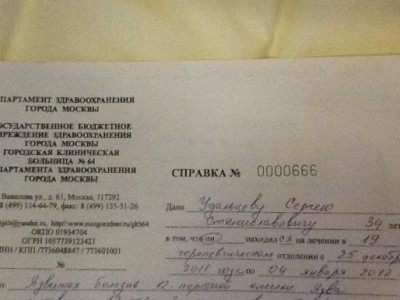 ПАРТАМЕНТ ЗДРАВООХРАНЕНИЯ
ГОРОДА МОСКВЫ
ОСУДАРСТВЕННОЕ БЮДЖЕТНОЕ
ЧРЕЖДЕНИЕ ЗДРАВООХРАНЕНИЯ
ГОРОДА МОСКВЫ
ГОРОДСКАЯ КЛИНИЧЕСКАЯ
БОЛЬНИЦА № 64
ПАРТАМЕНТА ЗДРАВООХРАНЕНИЯ
ГОРОДА МОСКВЫ
Вавилова ул., д. 61, Москва, 117292
8 (499) 134-64-79, факс: 8 (499) 135-51-26
ОКПО 01934704
ОГРН 1037739123421
ИНН / КПП 7736044847 / 773601001
№
СПРАВКА № 0000666
Дана Удальцову Сергею
Станиславовичу 34
в том, что он находился на лечении в 19
терапевтическом отделении с 25 декабр
2011 года по 04 января 2012
Язвенная болезнь 12-перстной кишки Язва